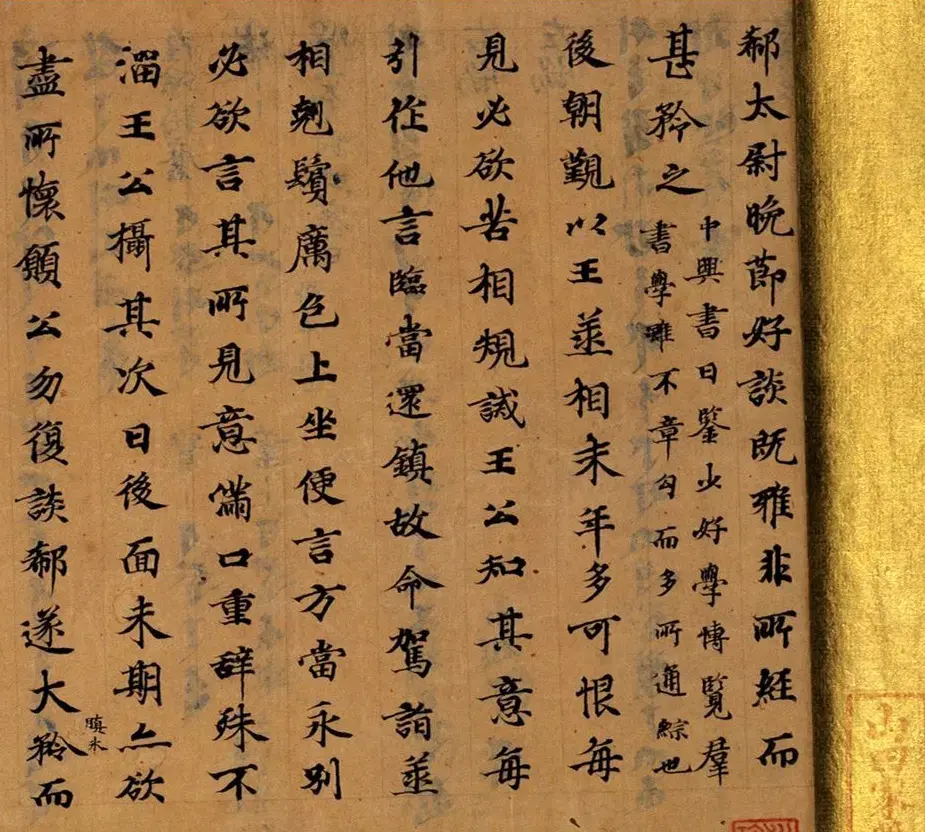 郗太尉晚節好談既雅非所經而
甚矜之
中興書曰鑒少好學博覽羣
書學雖不章勾而多所通綜也
後朝覲以王丞相末年多可恨每
見必欲苦相規誡王公知其意每
引作他言臨當還鎮故命駕詣丞
相剋鬢厲色上坐便言方當永別
必欲言其所見意滿口重辭殊不
溜王公攝其次曰後面未期亦欲
盡所懷願公勿復談郗遂大矜而
瞋氷